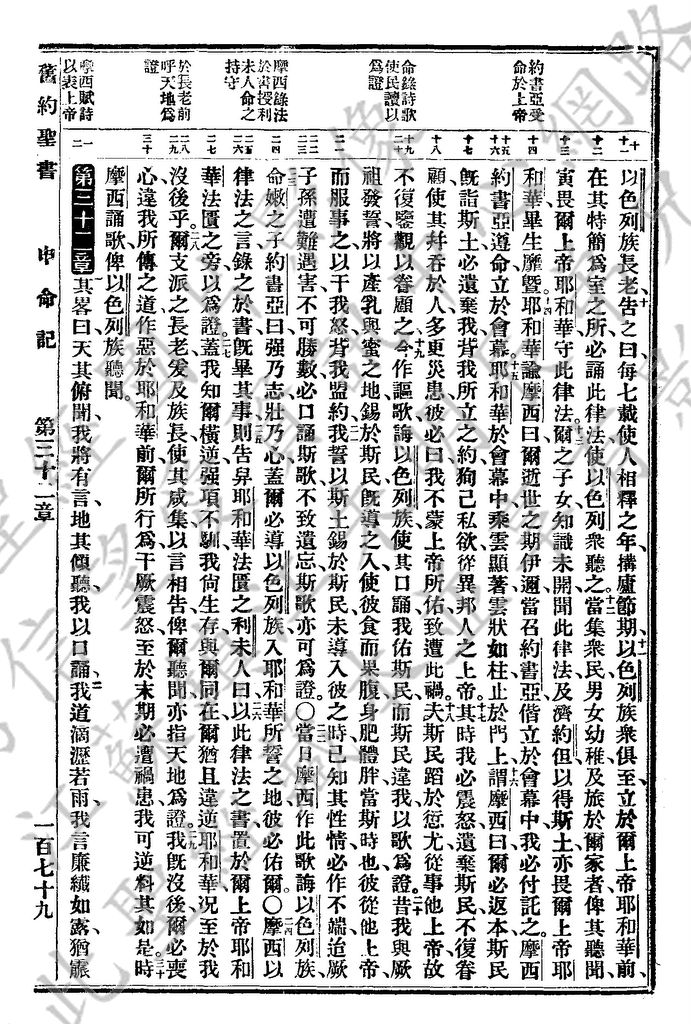 舊約聖書 申命記 第三十二章 一百七十九
約書亞受命於上帝
命錄詩歌使民讀以爲證
摩西錄法於書授利未人命之持守
於長老前呼天地爲證
摩西賦詩以表上帝
以色列族長老告之曰每七載使人相釋之年搆廬節期以色列族衆俱至立於爾上帝耶和華前
在其特簡爲室之所必誦此律法使以色列衆聽之當集衆民男女幼稚及旅於爾家者俾其聽聞
寅畏爾上帝耶和華守此律法爾之子女知識未開聞此律法及濟約但以得斯土亦畏爾上帝耶
和華畢生靡曁耶和華諭摩西曰爾逝世之期伊邇當召約書亞偕立於會幕中我必付託之摩西
約書亞遵命立於會幕耶和華於會幕中乘雲顯著雲狀如柱止於門上謂摩西曰爾必返本斯民
旣詣斯土必遺棄我背我所立之約狥己私欲從異邦人之上帝其時我必震怒遺棄斯民不復眷
顧使其幷吞於人多更災患彼必曰我不蒙上帝所佑致遭此禍夫斯民蹈於愆尤從事他上帝故
不復鑒觀以眷顧之今作謳歌誨以色列族使其口誦我佑斯民而斯民違我以歌爲證昔我與厥
祖發誓將以產乳與蜜之地錫於斯民旣導之入使彼食而果腹身肥體胖當斯時也彼從他上帝
而服事之以干我怒背我盟約我誓以斯土錫於斯民未導入彼之時已知其性情必作不端迨厥
子孫遭難遇害不可勝數必口誦斯歌不致遺忘斯歌亦可爲證〇當日摩西作此歌誨以色列族
命嫩之子約書亞曰强乃志壯乃心蓋爾必導以色列族入耶和華所誓之地彼必佑爾〇摩西以
律法之言錄之於書旣畢其事則告舁耶和華法匱之利未人曰以此律法之書置於爾上帝耶和
華法匱之旁以爲證蓋我知爾橫逆强項不馴我尙生存與爾同在爾猶且違逆耶和華況至於我
沒後乎爾支派之長老爰及族長使其咸集以言相告俾爾聽聞亦指天地爲證我旣沒後爾必喪
心違我所傳之道作惡於耶和華前爾所行爲干厥震怒至於末期必遭禍患我可逆料其如是時
摩西誦歌俾以色列族聽聞
第三十二章 其畧曰天其俯聞我將有言地其傾聽我以口誦我道滴瀝若雨我言廉纖如露猶霢